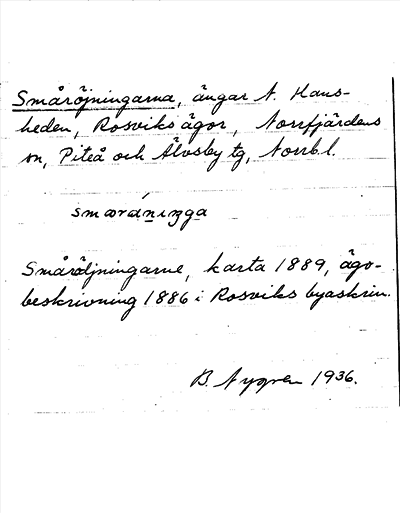 Småröjningarna, ängar N. Hans-
heden, Rosviks ägor, Norrfjärdens
sn, Piteå och Älvsby tg, Norrb. l.
Småröjningarne, karta 1889, ägo-
beskrivning 1886 i Rosviks byaskrin.
B. Nygren 1936.